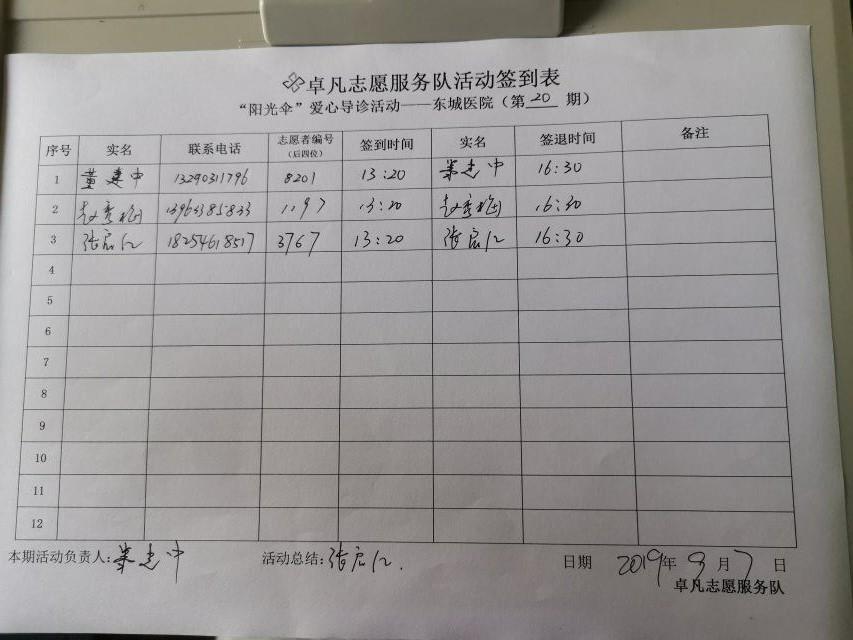 卓凡志愿服务队活动签到表
“阳光伞”爱心导诊活动——东城医院（第 20 期）
序号 实名 联系电话 志愿者编号（后四位） 签到时间 实名 签退时间 备注
1 董建中 13290311796 8201 13:20 董建中 16:30
2 赵秀梅 13963385833 1197 13:20 赵秀梅 16:30
3 张启仁 18254618517 3767 13:20 张启仁 16:30
4
5
6
7
8
9
10
11
12
本期活动负责人:董建中 活动总结:张启仁. 日期 2019年9月7日
卓凡志愿服务队